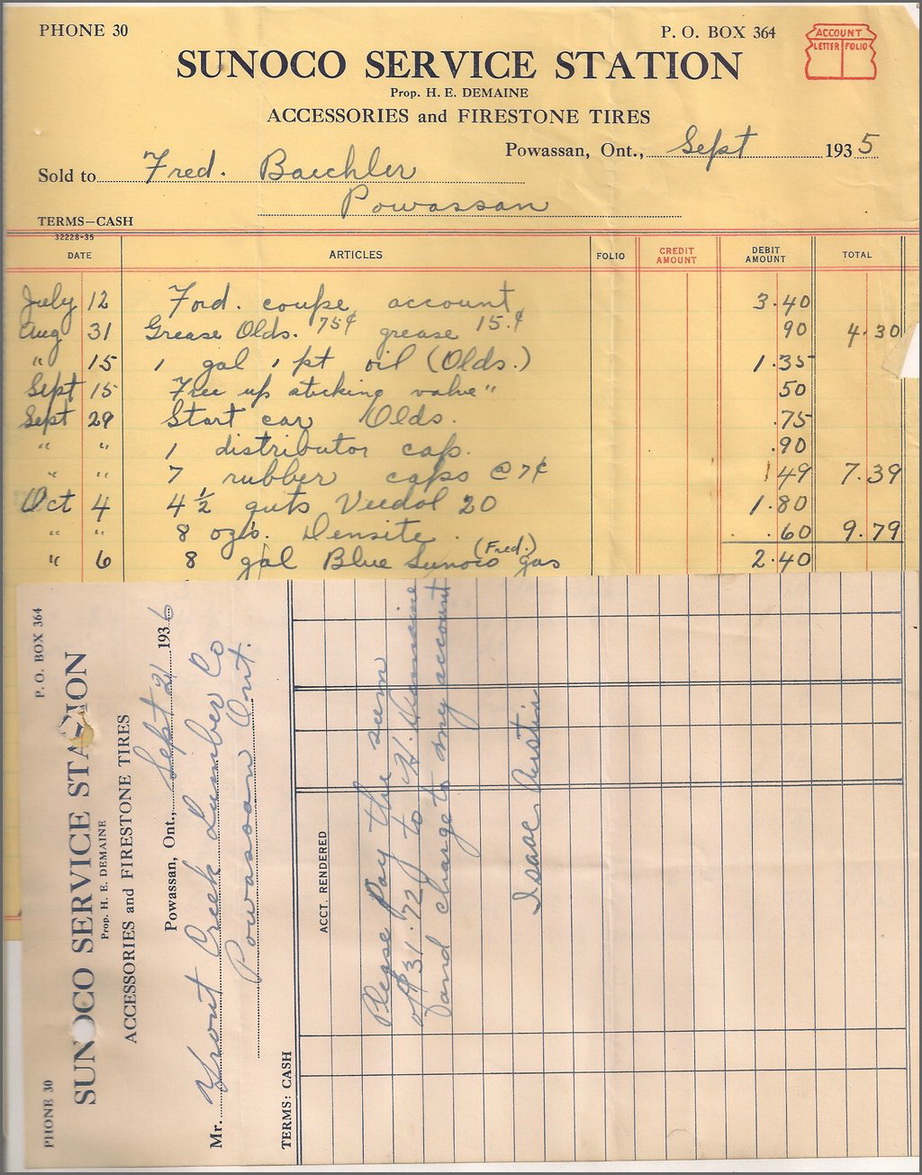 PHONE 30 P. O. BOX 364
ACCOUNT
LETTER FOLIO
SUNOCO SERVICE STATION
Prop. H. E. DEMAINE
ACCESSORIES and FIRESTONE TIRES
Powassan, Ont., Sept 1935
Sold to Fred. Baechler
Powassan
TERMS—CASH
32228-35
DATE ARTICLES FOLIO CREDIT AMOUNT DEBIT AMOUNT TOTAL
July 12 Ford. coupe account 3.40
Aug 31 Grease Olds. 75¢ grease 15.¢ 90 4.30
" 15 1 gal 1 pt oil (Olds.) 1.35
Sept 15 Free up sticking valve" 50
Sept 29 Start car Olds. .75
" " 1 distributor cap. .90
" " 7 rubber caps @ 7¢ 49 7.39
Oct 4 4 1/2 quts Veedol 20 1.80
" " 8 ozs. Densite . .60 9.79
" 6 8 gal Blue Sunoco (Fred.) gas 2.40
PHONE 30 P. O. BOX 364
SUNOCO SERVICE STATION
Prop. H. E. DEMAINE
ACCESSORIES and FIRESTONE TIRES
Powassan, Ont., Sept 21 1936
Mr. Trout Creek Lumber Co
Powassan Ont.
TERMS: CASH
ACCT. RENDERED
Please Pay the sum
of $31.72 to H. Demaine
and charge to my account
Isaac Austin